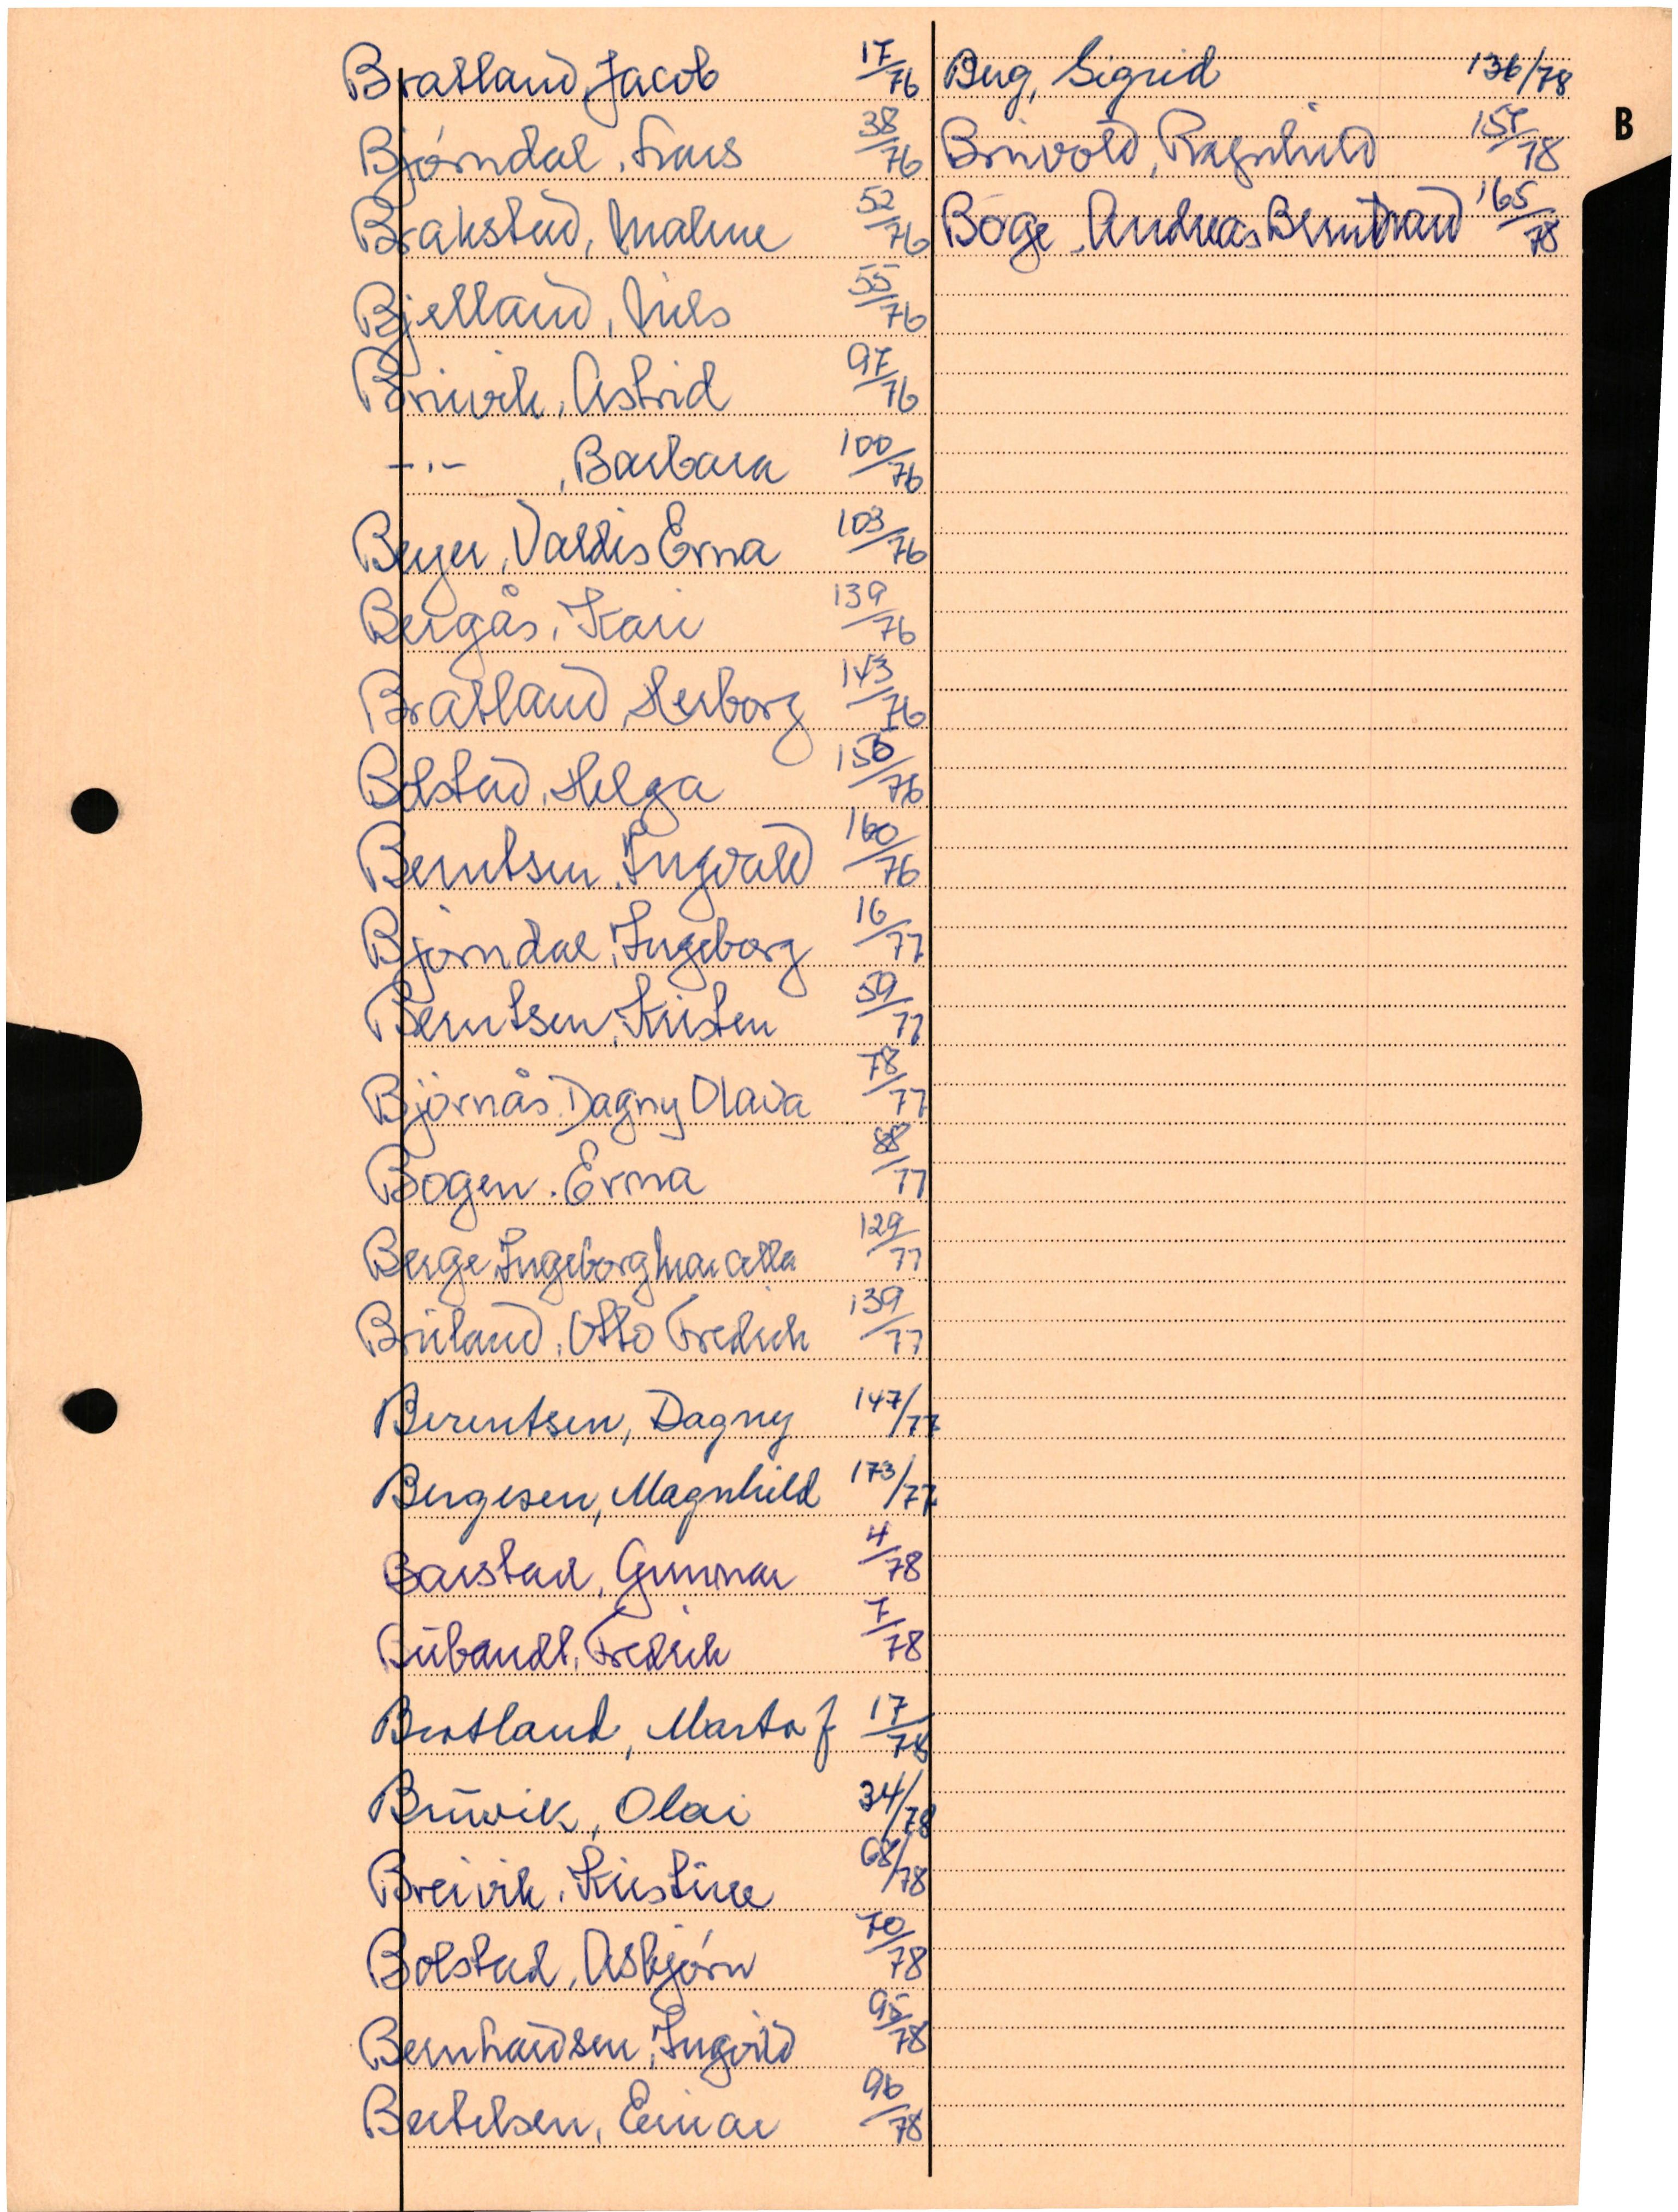 Bratland, Jacob 17/76
Bjørndal, Lars 38/76
Brakstad, Malene 52/76
Bjelland, Nils 55/76
Breivik, Astrid 97/76
-"- , Barbara 100/76
Beyer, Valdis Erna 103/76
Bergås, Kari 139/76
Bratland, Herborg 143/76
Bolstad, Helga 156/76
Berntsen, Ingvald 160/76
Bjørndal, Ingeborg 16/77
Berntsen, Kristen 59/77
Bjørnås, Dagny Olava 78/77
Bogen, Erna 88/77
Berge, Ingeborg Marcella 129/77
Breland, Otto Fredrik 139/77
Berentsen, Dagny 147/77
Bergesen, Magnhild 173/77
Barstad, Gunnar 4/78
Fredrik 7/78
Bratland, Marta J 17/78
Breivik, Olai 34/78
Breivik, Kristine 68/78
Bolstad, Asbjørn 70/78
Bernhardsen, Ingvild 95/78
Bertelsen, Einar 96/78
Berg, Sigrid 136/78
Breivold, Ragnhild /78
Boge, Andreas 165/78
B